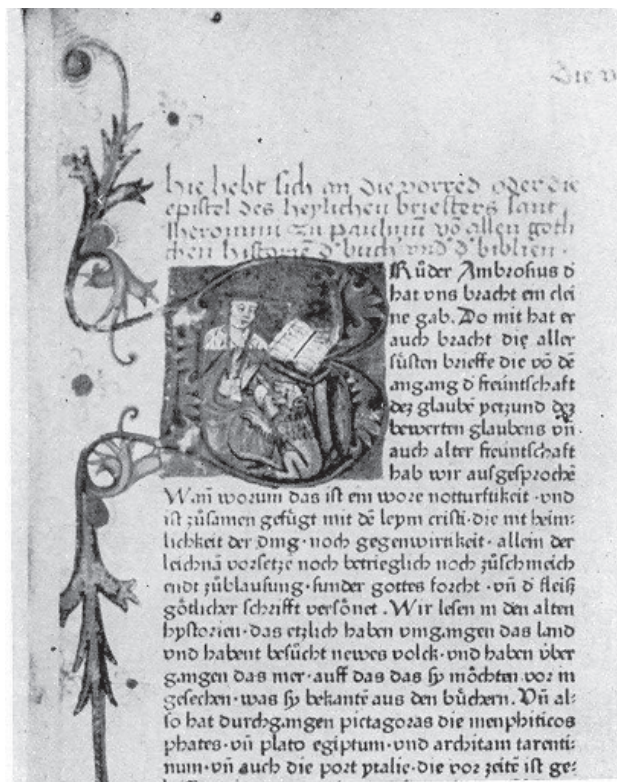 Die v
hie hebt sich an die vorred oder die
epistel des heylichen briesters sant
Jheronimi zu paulinū vō allen gotli
chen historiē d' bucħ vnd d' biblien.
BRůder Ambrosius d
hat vns bracht ein clei
ne gab. Do mit hat er
auch bracht die aller
sůsten brieffe die vō dē
angang d' freüntschaft
dez glaubē yetzund dez
bewerten glaubens vn̄.
auch alter freüntschaft
hab wir aufgesprochē
Wan̄ worum das ist ein wore notturfikeit ·vnd
ist zůsamen gefůgt mit dē leym cristi·die nit heim⸗
lichkeit der ding·noch gegenwirtikeit·allein der
leichnā vorsetze noch betrieglich noch zůschmeich
endt zůblausung·sunder gottes forcht·vn̄ d' fleiß
gőtlicher schrifft versőnet. Wir lesen in den alten
hystorien·das etzlich haben vmgangen das land
vnd habent besůcht newes volck·vnd haben über
gangen das mer·auff das das sy mőchten vor in
gesechen·was sy bekantē aus den bůchern. Vn̄ al⸗
so hat durchgangen pictagoras die menphiticos
phates·vn̄ plato egiptum·vnd architam tarenti⸗
num·vn̄ auch die port ytalie·die vor zeitē ist ge⸗